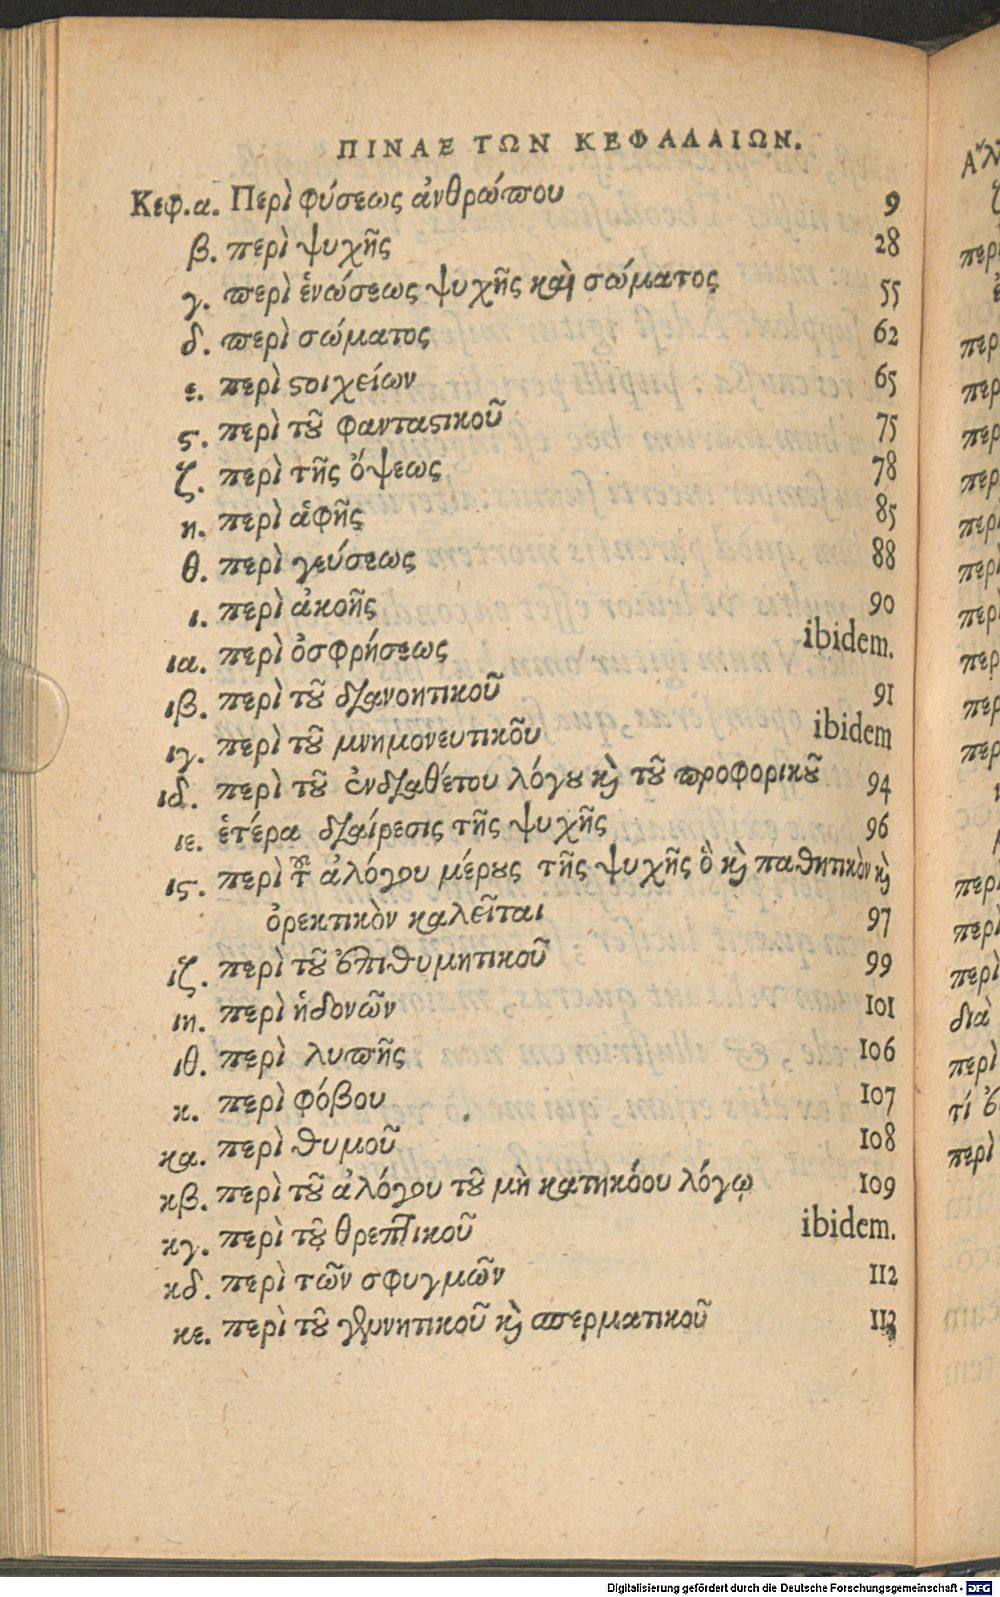 ΠΙΝΑΞ ΤΩΝ ΚΕΦΑΛΑΙΩΝ.
Κεφ.α. Περὶ φύσεως ἀνθρώπου 9
β. περὶ ψυχῆς 28
γ. περὶ ἑνώσεως ψυχῆς καὶ σώματος 55
δ. περὶ σώματος 62
ε. περὶ ϛοιχείων 65
ϛ. περὶ τοῦ φανταϛικοῦ 75
ζ. περὶ τῆς ὄψεως 78
η. περὶ ἁφῆς 85
θ. περὶ γεύσεως 88
ι. περὶ ἀκοῆς 90
ια. περὶ ὀσφρήσεως ibidem.
ιβ. περὶ τοῦ διανοητικοῦ 91
ιγ. περὶ τοῦ μνημονευτικοῦ ibidem
ιδ. περὶ τοῦ ἐνδιαθέτου λόγου καὶ τοῦ προφορικοῦ 94
ιε. ἑτέρα διαίρεσις τῆς ψυχῆς 96
ιϛ. περὶ τοῦ ἀλόγου μέρους τῆς ψυχῆς ὃ καὶ παθητικὸν καὶ
ὀρεκτικὸν καλεῖται 97
ιζ. περὶ τοῦ ἐπιθυμητικοῦ 99
ιη. περὶ ἡδονῶν 101
ιθ. περὶ λυπῆς 106
κ. περὶ φόβου 107
κα. περὶ θυμοῦ 108
κβ. περὶ τοῦ ἀλόγου τοῦ μὴ κατηκόου λόγῳ 109
κγ. περὶ τοῦ θρεπτικοῦ ibidem.
κδ. περὶ τῶν σφυγμῶν 112
κε. περὶ τοῦ γεννητικοῦ καὶ σπερματικοῦ 113
περὶ
περὶ
περὶ
περὶ
διὰ
περὶ
τί
περὶ
Digitalisierung gefördert durch die Deutsche Forschungsgemeinschaft - DFG